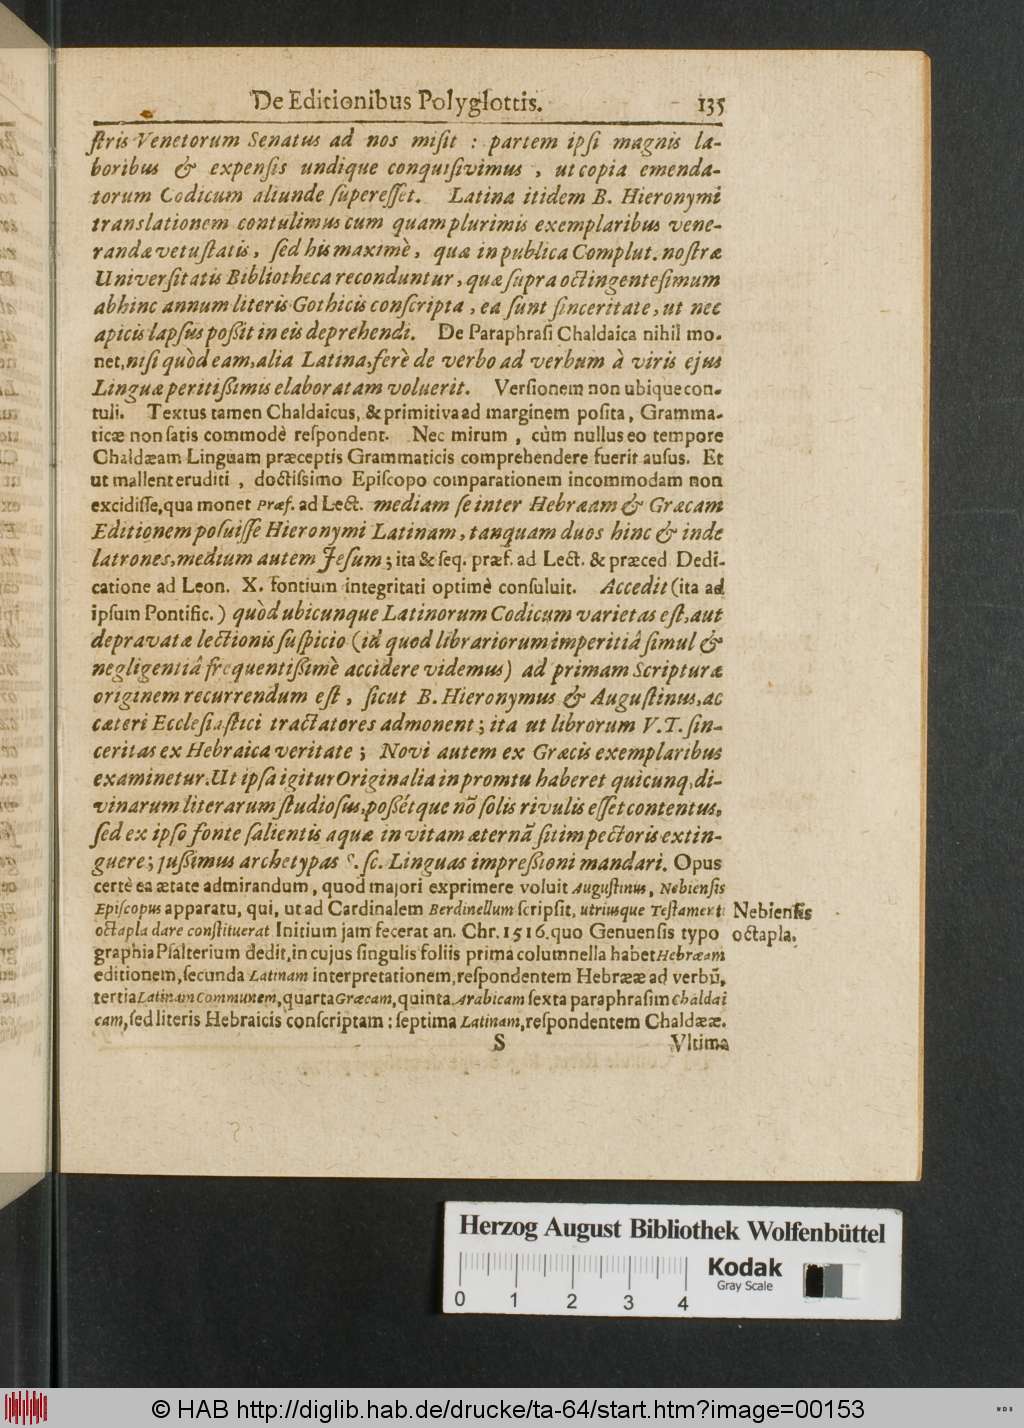 De Editionibus Polyglottis. 135
ſtris Venetorum Senatus ad nos miſit : partem ipſi magnis la-
boribus & expenſis undique conquiſivimus , ut copia emenda-
torum Codicum aliunde ſupereſſet. Latina itidem B. Hieronymi
translationem contulimus cum quamplurimis exemplaribus vene-
randæ vetuſtatis, ſed his maximè, quæ in publica Complut. noſtræ
Univerſitatis Bibliotheca reconduntur, quæ ſupra octingenteſimum
abhinc annum literis Gothicis conſcripta , ea ſunt ſinceritate, ut nec
apicis lapſus poßit in eis deprehendi. De Paraphraſi Chaldaica nihil mo-
net, niſi quòd eam, alia Latina, ferè de verbo ad verbum à viris ejus
Linguæ peritißimis elaboratam voluerit. Verſionem non ubique con-
tuli. Textus tamen Chaldaicus, & primitiva ad marginem poſita, Gramma-
ticæ non ſatis commodè reſpondent. Nec mirum , cùm nullus eo tempore
Chaldæam Linguam præceptis Grammaticis comprehendere fuerit auſus. Et
ut mallent eruditi , doctiſsimo Epiſcopo comparationem incommodam non
excidiſſe, qua monet Præf. ad Lect. mediam ſe inter Hebræam & Græcam
Editionem poſuiſſe Hieronymi Latinam, tanquam duos hinc & inde
latrones, medium autem Jeſum; ita & ſeq. præf. ad Lect. & præced Dedi-
catione ad Leon. X. fontium integritati optimè conſuluit. Accedit (ita ad
ipſum Pontific.) quòd ubicunque Latinorum Codicum varietas eſt, aut
depravatæ lectionis ſuſpicio (id quod librariorum imperitiâ ſimul &
negligentiâ frequentißimè accidere videmus) ad primam Scripturæ
originem recurrendum eſt , ſicut B. Hieronymus & Auguſtinus, ac
cæteri Eccleſiaſtici tractatores admonent; ita ut librorum V. T. ſin-
ceritas ex Hebraica veritate ; Novi autem ex Græcis exemplaribus
examinetur. Ut ipſa igitur Originalia in promtu haberet quicunq, di-
vinarum literarum ſtudioſus, poßétque nō ſolis rivulis eſſet contentus,
ſed ex ipſo fonte ſalientis aquæ in vitam æternā ſitim pectoris extin-
guere; juſſimus archetypas S. ſc. Linguas impreßioni mandari. Opus
certè ea ætate admirandum, quod majori exprimere voluit Auguſtinus, Nebienſis
Epiſcopus apparatu, qui, ut ad Cardinalem Berdinellum ſcripſit, utriusque Teſtamenti
octapla dare conſtituerat Initium jam fecerat an. Chr. 1516. quo Genuenſis typo
graphia Pſalterium dedit, in cujus ſingulis foliis prima columnella habet Hebræam
editionem, ſecunda Latinam interpretationem, reſpondentem Hebrææ ad verbū,
tertia Latinam Communem, quarta Græcam, quinta Arabicam ſexta paraphraſim Chaldai
cam, ſed literis Hebraicis conſcriptam : ſeptima Latinam, reſpondentem Chaldææ.
S Vltima
Nebienſis
octapla.
Herzog August Bibliothek Wolfenbüttel
0 1 2 3 4
Kodak
Gray Scale
© HAB http://diglib.hab.de/drucke/ta-64/start.htm?image=00153